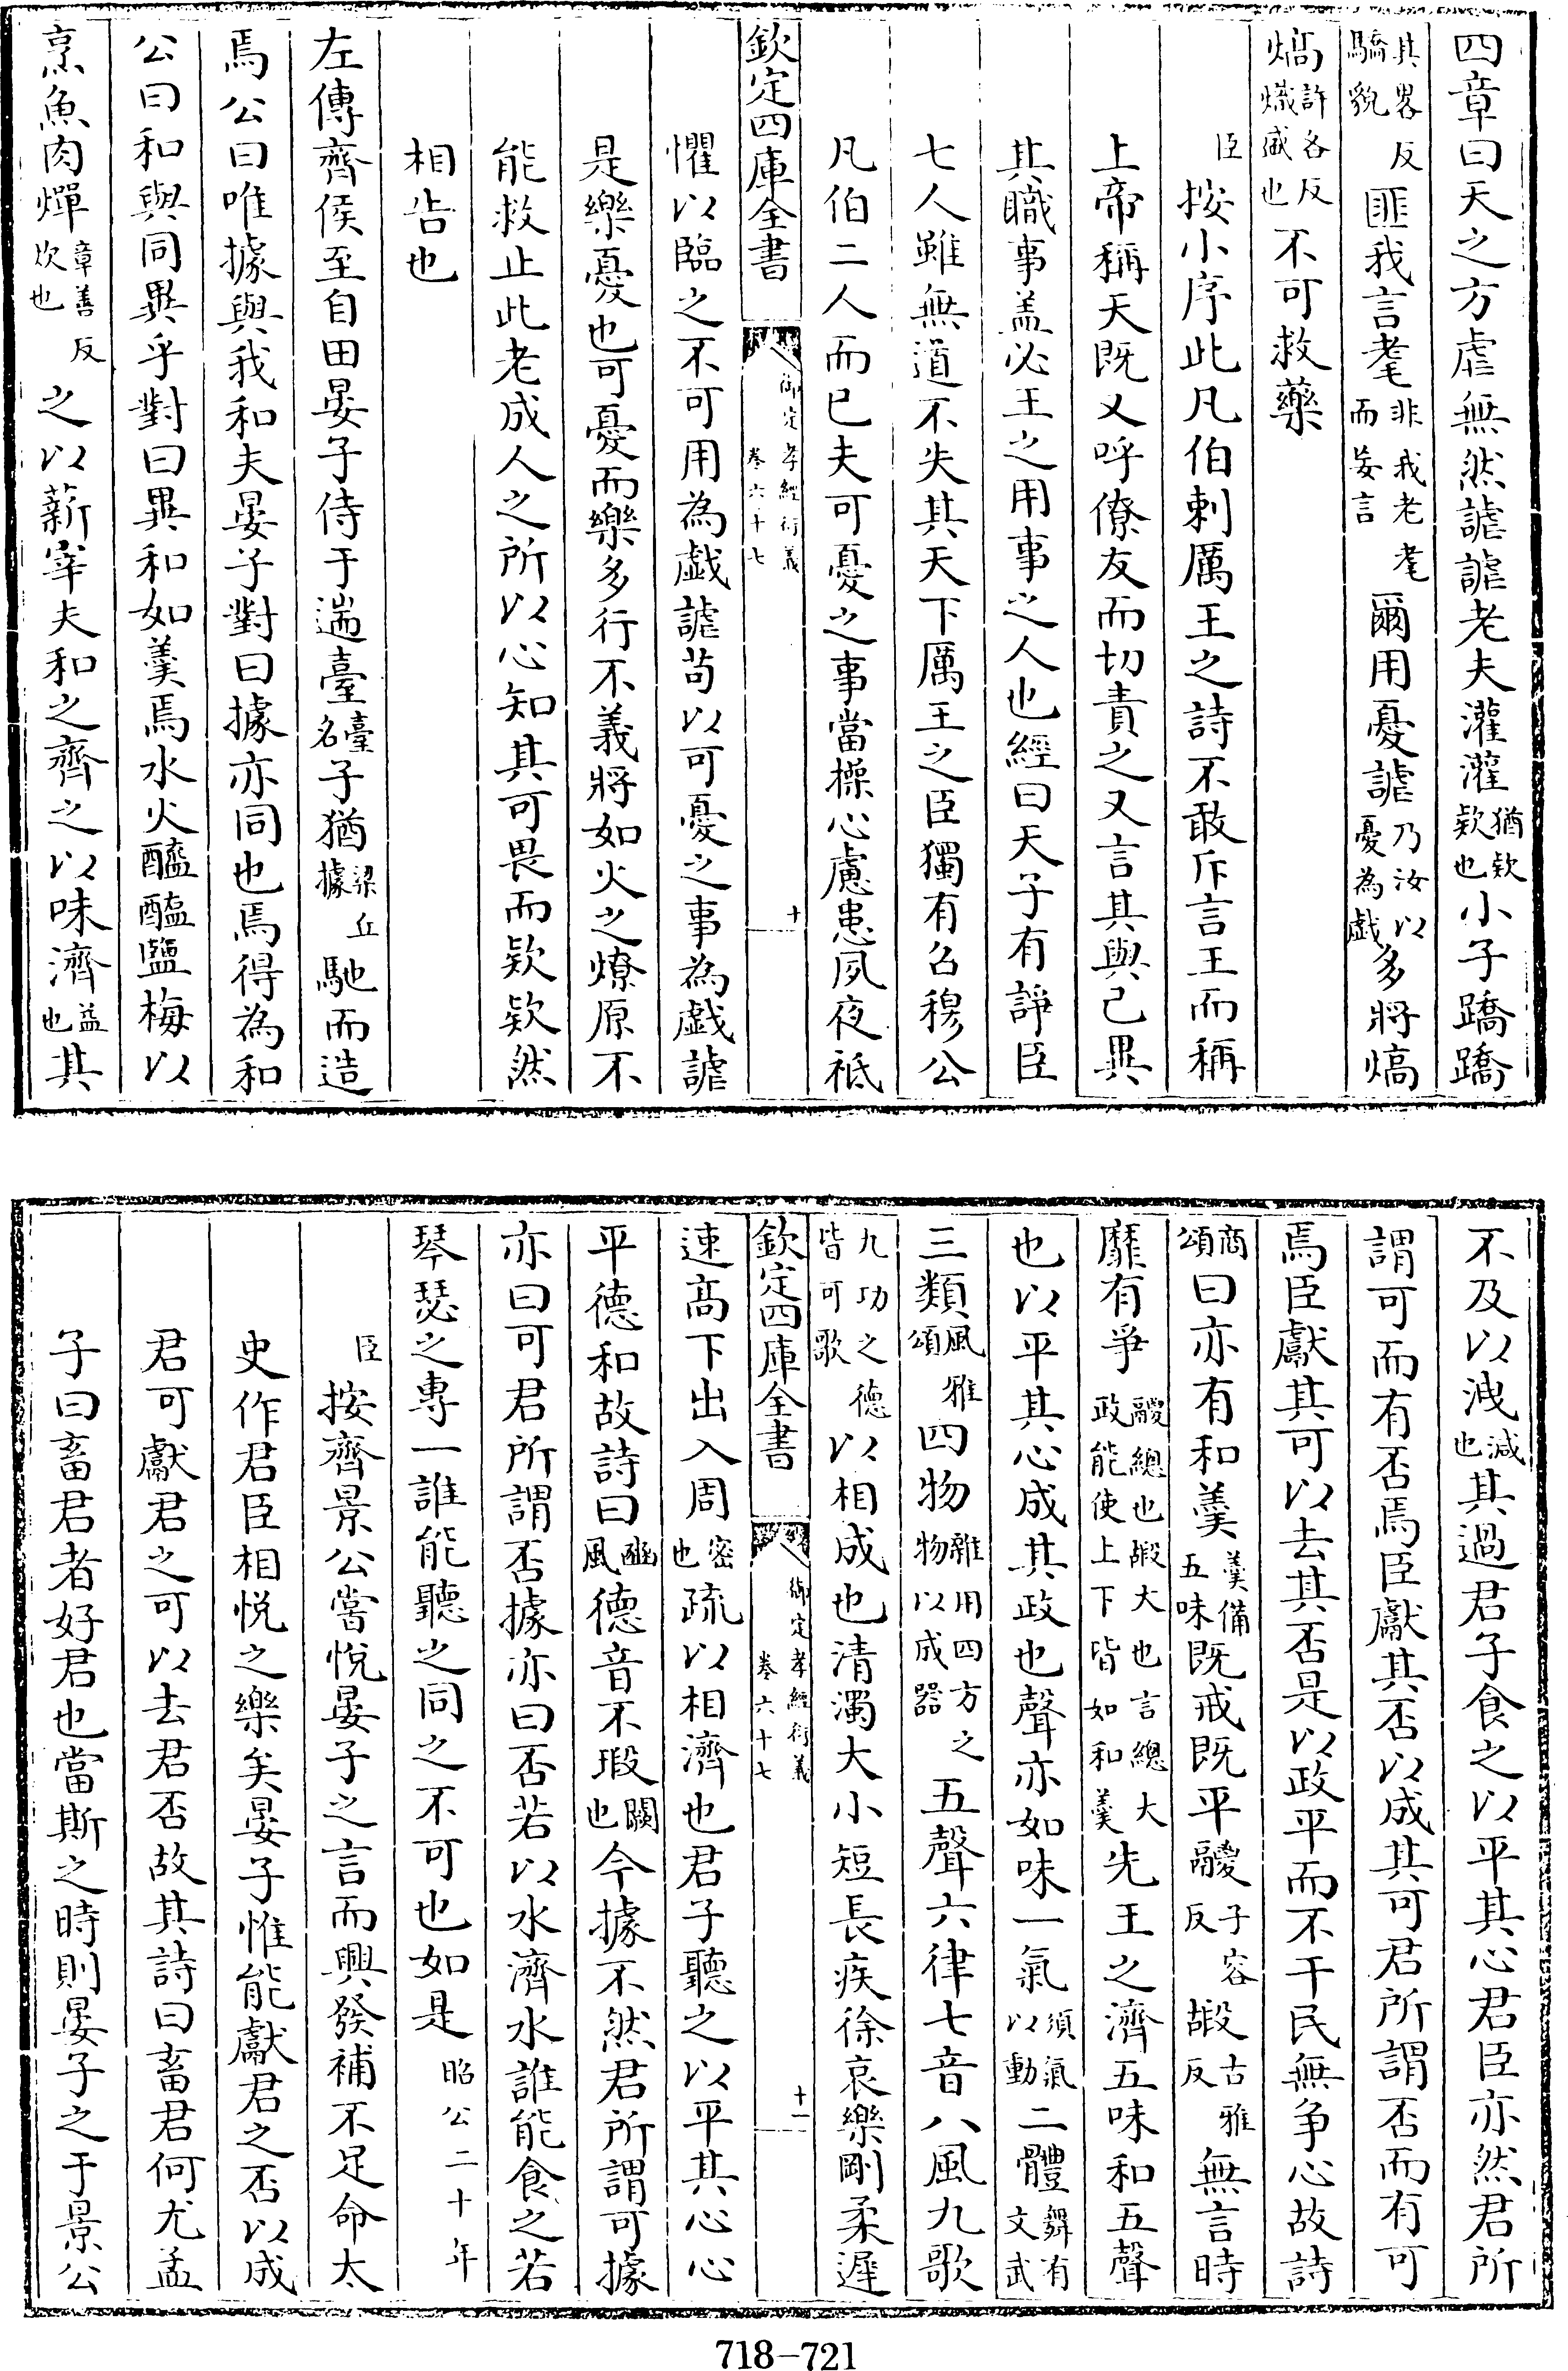 四章曰天之方虐無然謔謔老夫灌灌猶欵欵也小子蹻蹻
其畧反驕貌匪我言耄非我老耄而妄言爾用憂謔乃汝以憂為戲多將熇
熇許各反熾盛也不可救藥
臣按小序此凡伯刺厲王之詩不敢斥言王而稱
上帝稱天既又呼僚友而切責之又言其與己異
其職事盖必王之用事之人也經曰天子有諍臣
七人雖無道不失其天下厲王之臣獨有召穆公
凡伯二人而已夫可憂之事當操心慮患夙夜祗
欽定四庫全書 御定孝經衍義卷六十七 十
懼以臨之不可用為戲謔茍以可憂之事為戲謔
是樂憂也可憂而樂多行不義將如火之燎原不
能救止此老成人之所以心知其可畏而欵欵然
相告也
左傳齊侯至自田晏子侍于遄臺臺名子猶梁丘據馳而造
焉公曰唯據與我和夫晏子對曰據亦同也焉得為和
公曰和與同異乎對曰異和如羹焉水火醯醢鹽梅以
烹魚肉燀章善反炊也之以薪宰夫和之齊之以味濟益也其
不及以洩減也其過君子食之以平其心君臣亦然君所
謂可而有否焉臣獻其否以成其可君所謂否而有可
焉臣獻其可以去其否是以政平而不干民無争心故詩
商頌曰亦有和羹羹備五味既戒既平鬷子容反嘏古雅反無言時
靡有爭鬷總也嘏大也言總大政能使上下皆如和羹先王之濟五味和五聲
也以平其心成其政也聲亦如味一氣須氣以動二體舞有文武
三類風雅頌四物雜用四方之物以成器五聲六律七音八風九歌
九功之德皆可歌以相成也清濁大小短長疾徐哀樂剛柔遲
欽定四庫全書 御定孝經衍義卷六十七 十一
速髙下出入周密也疏以相濟也君子聽之以平其心心
平德和故詩曰豳風德音不瑕闕也今據不然君所謂可據
亦曰可君所謂否據亦曰否若以水濟水誰能食之若
琴瑟之專一誰能聽之同之不可也如是昭公二十年
臣按齊景公嘗悅晏子之言而興發補不足命太
史作君臣相悅之樂矣晏子惟能獻君之否以成
君可獻君之可以去君否故其詩曰畜君何尤孟
子曰畜君者好君也當斯之時則晏子之于景公
718-721